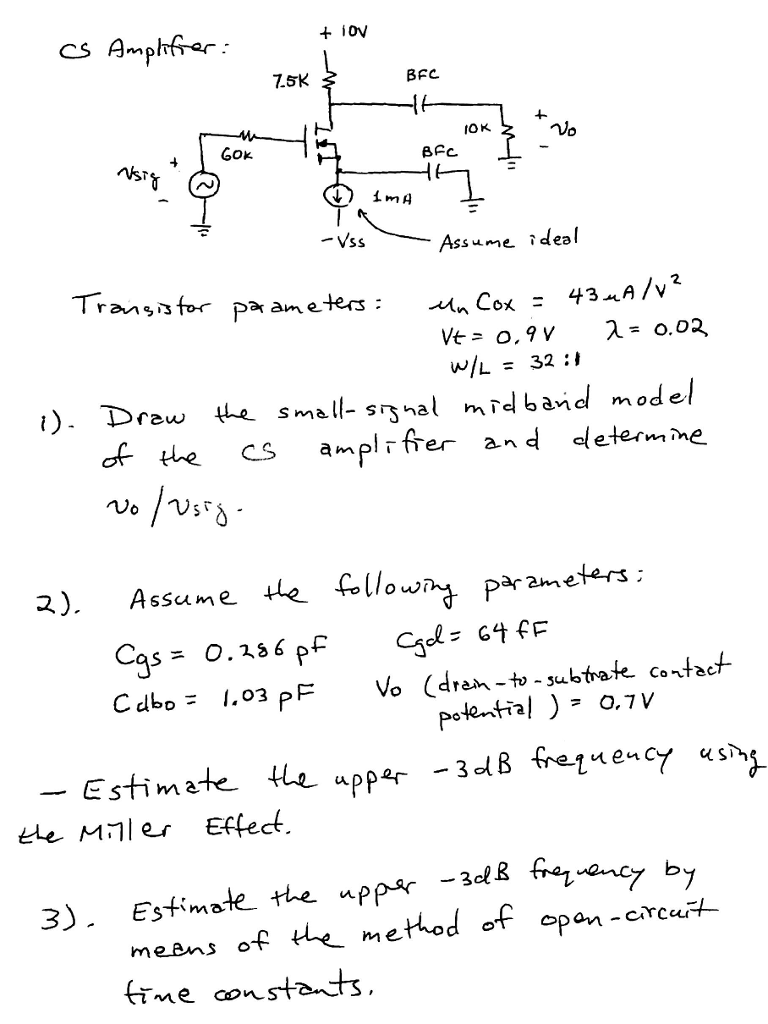 CS Amplifier:
+ 10V
7.5K
BFC
10K
+
Vo
-
60K
BFC
+
Vsig
~
-
1mA
-Vss
Assume ideal
Transistor parameters: μn Cox = 43 μA/V²
Vt = 0.9V λ = 0.02
W/L = 32:1
1). Draw the small-signal midband model
of the CS amplifier and determine
vo/vsig.
2). Assume the following parameters:
Cgs = 0.286 pF Cgd = 64 fF
Cdbo = 1.03 pF Vo (drain-to-substrate contact
potential) = 0.7V
- Estimate the upper -3dB frequency using
the Miller Effect.
3). Estimate the upper -3dB frequency by
means of the method of open-circuit
time constants.